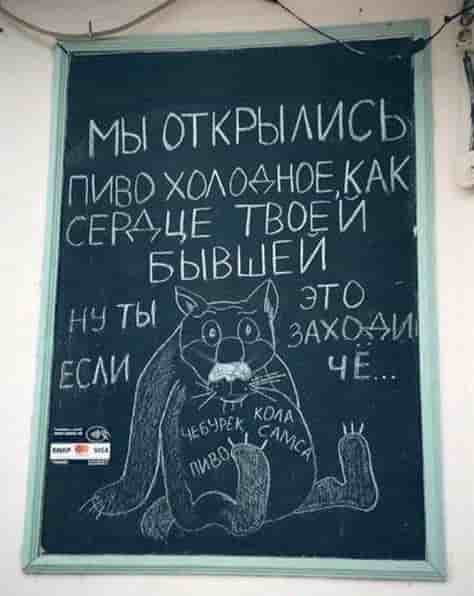 МЫ ОТКРЫЛИСЬ
ПИВО ХОЛОДНОЕ, КАК
СЕРДЦЕ ТВОЕЙ
БЫВШЕЙ
НУ ТЫ ЭТО
ЕСЛИ ЗАХОДИ
ЧЁ...
ЧЕБУРЕК КОЛА
ПИВО САМСА
МИР VISA